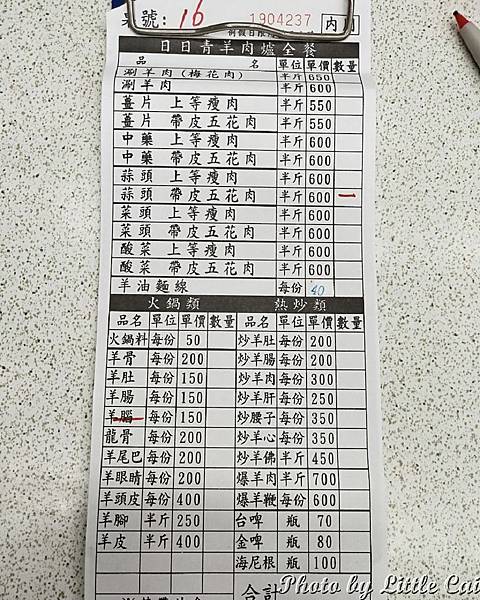 號: 16 1904237 內 用
日日青羊肉爐全餐
品 名 單位 單價 數量
涮羊肉(梅花肉) 半斤 650
涮羊肉 半斤 600
薑片 上等瘦肉 半斤 550
薑片 帶皮五花肉 半斤 550
中藥 上等瘦肉 半斤 600
中藥 帶皮五花肉 半斤 600
蒜頭 上等瘦肉 半斤 600
蒜頭 帶皮五花肉 半斤 600 一
菜頭 上等瘦肉 半斤 600
菜頭 帶皮五花肉 半斤 600
酸菜 上等瘦肉 半斤 600
酸菜 帶皮五花肉 半斤 600
羊油麵線 每份 40
火鍋類 熱炒類
品名 單位 單價 數量 品名 單位 單價 數量
火鍋料 每份 50 炒羊肚 每份 200
羊骨 每份 200 炒羊腸 每份 200
羊肚 每份 150 炒羊肉 每份 300
羊腸 每份 150 炒羊肝 每份 250
羊腦 每份 150 炒腰子 每份 350
龍骨 每份 200 炒羊心 每份 350
羊尾巴 每份 200 炒羊佛 半斤 450
羊眼睛 每份 200 爆羊肉 半斤 700
羊頭皮 每份 400 爆羊鞭 每份 600
羊腳 半斤 250 台啤 瓶 70
羊皮 半斤 400 金啤 瓶 80
海尼根 瓶 100
合計
Photo by Little Cat